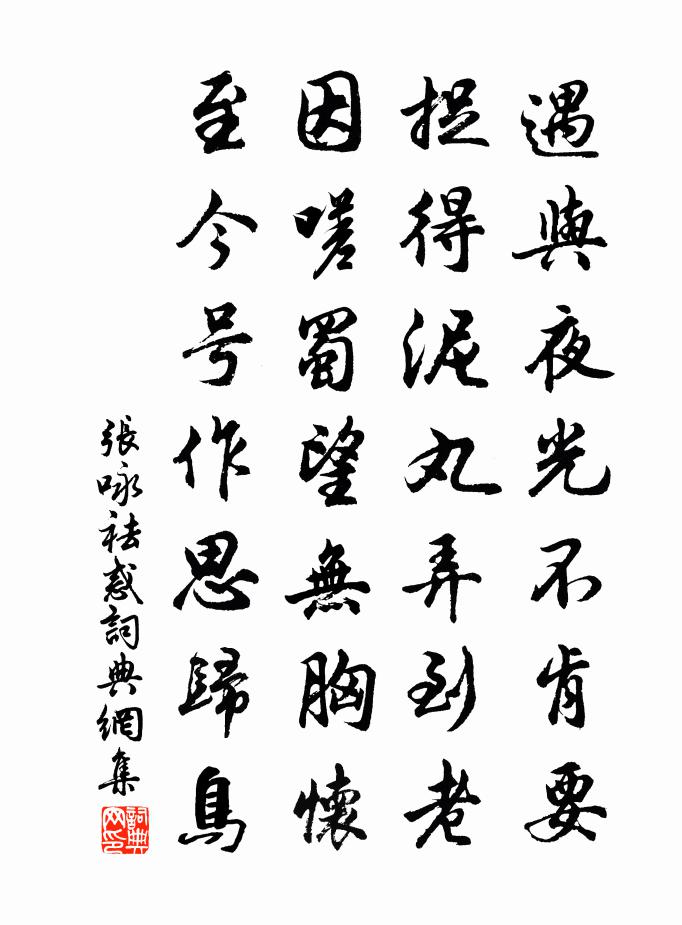 遇與夜光不肯要
捉得泥丸弄到老
因嗟蜀望無胸懷
至今号作思歸鳥
張咏袪惑詞典網集
詞典网印